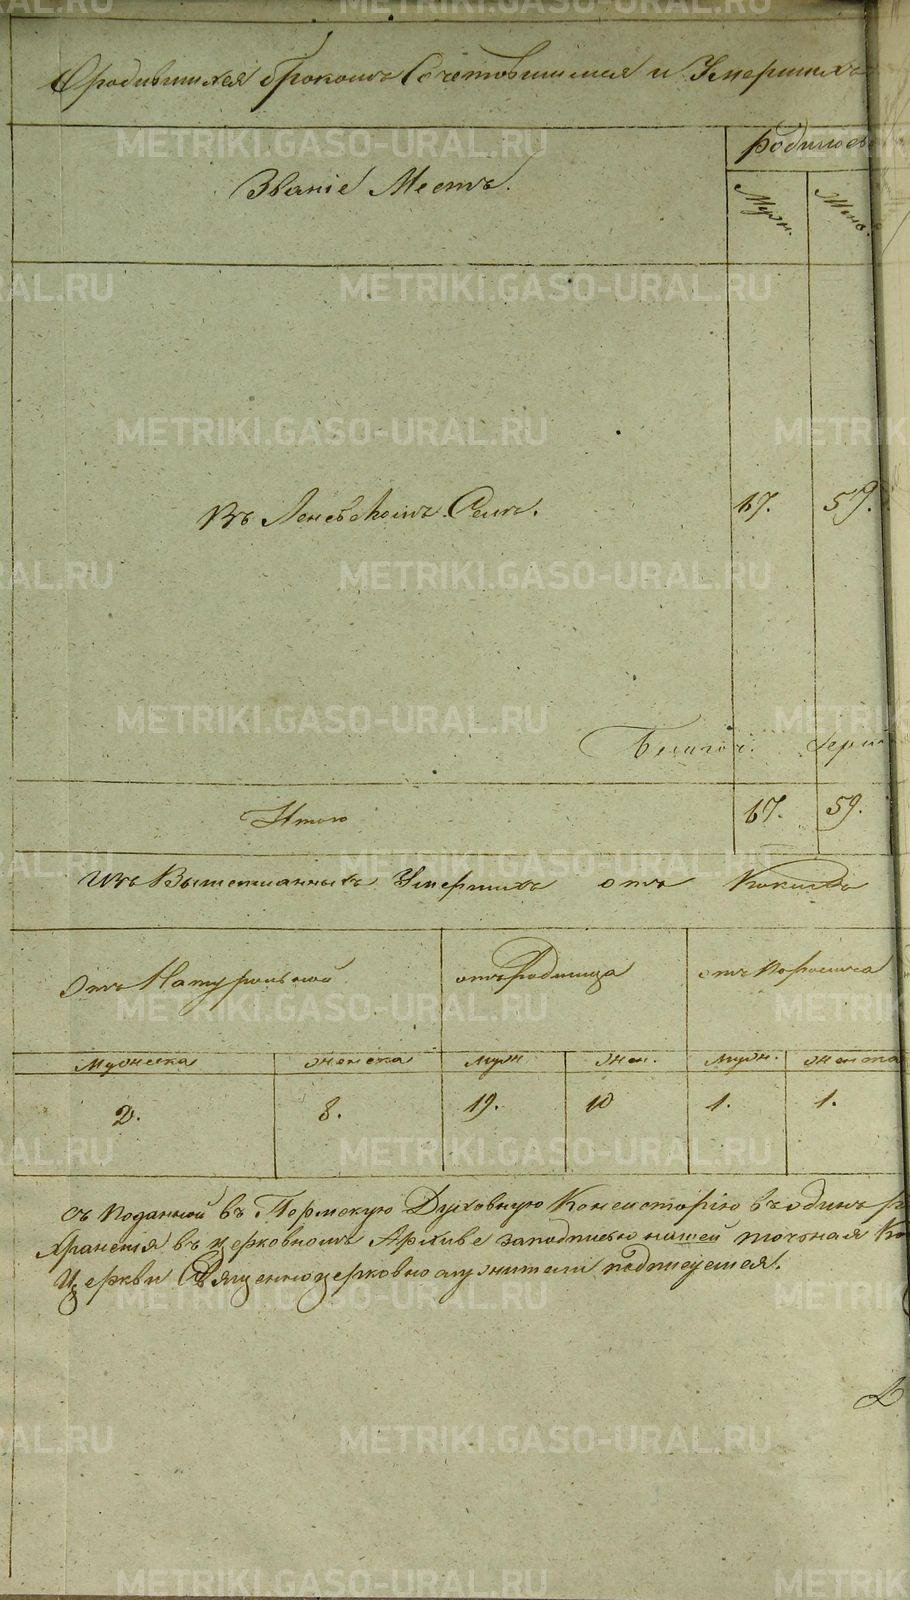 О родившихся браком Сочетовшимся и Умерших
Звание Месть.
родилось
Муж.
Женс.
Въ Леневском Селе.
67.
59.
Благоч.
Итого
67.
59.
Изъ Вышеписанныхъ Умершихъ отъ
отъ Натуральной
отъ Родимца
отъ
мужеска
женска
муж
жен.
муж.
женска
2.
8.
19.
10
1.
1.
съ поданной въ Пермскую Духовную Консисторiю въ одинъ
хранения въ церковномъ Архиве заподписью нашей точная Ко
Церкви Священноцерковно служители подписуемся.
METRIKI.GASO-URAL.RU